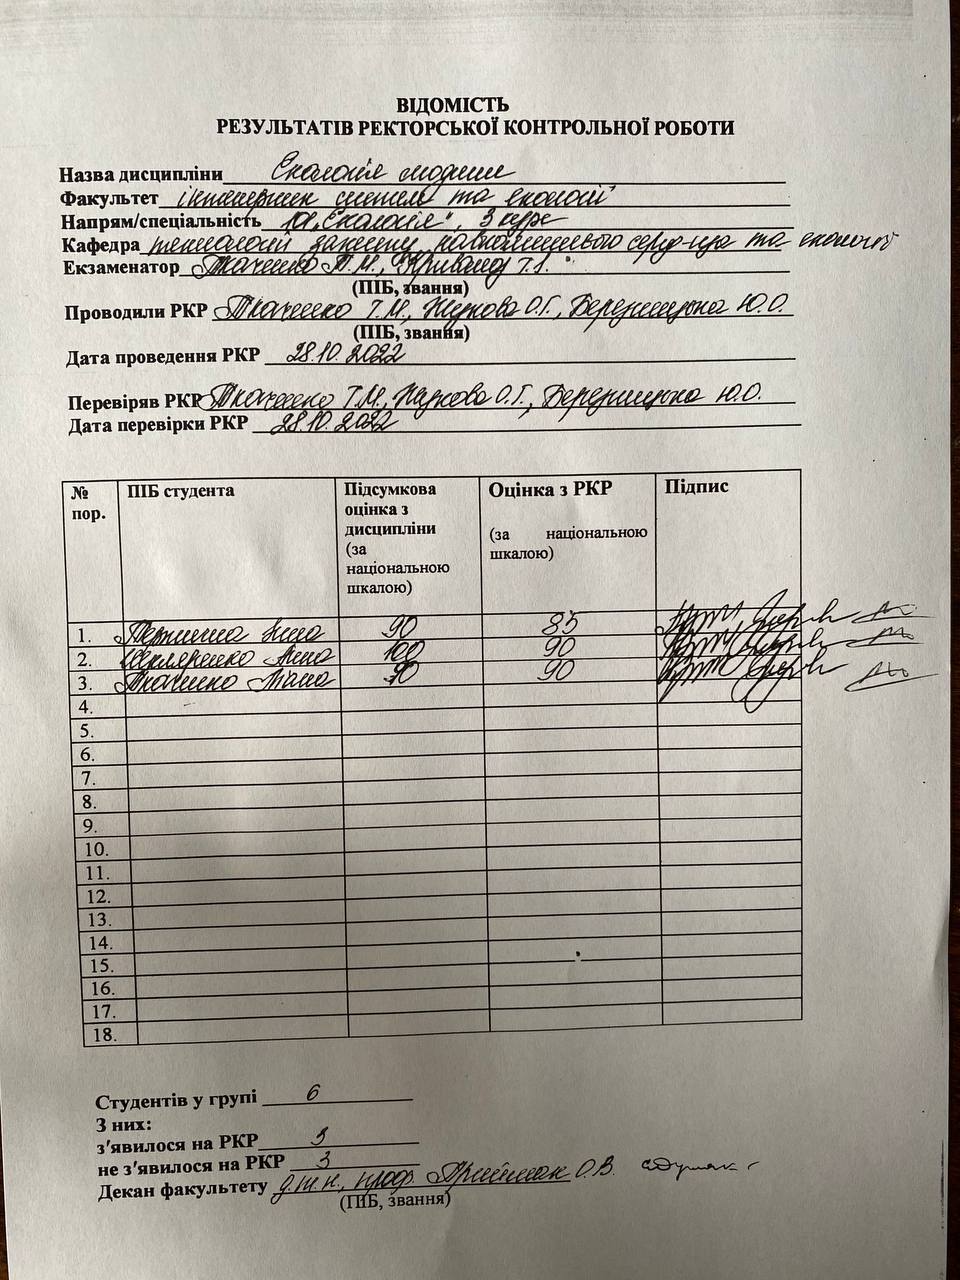 ВІДОМІСТЬ
РЕЗУЛЬТАТІВ РЕКТОРСЬКОЇ КОНТРОЛЬНОЇ РОБОТИ
Назва дисципліни Екологія людини
Факультет інженерних систем та екології
Напрям/спеціальність 101 „Екологія", 3 курс
Кафедра технологій захисту навколишнього серед-ща та екології
Екзаменатор Ткаченко Т.М., Кривомаз Т.І.
(ПІБ, звання)
Проводили РКР Ткаченко Т.М., Жукова О.Г., Березницька Ю.О.
(ПІБ, звання)
Дата проведення РКР 28.10.2022
Перевіряв РКР Ткаченко Т.М., Жукова О.Г., Березницька Ю.О.
Дата перевірки РКР 28.10.2022
№ пор. ПІБ студента Підсумкова оцінка з дисципліни (за національною шкалою) Оцінка з РКР (за національною шкалою) Підпис
1. 90 85
2. Шкляренко Анна 100 90
3. Ткаченко 90 90
4.
5.
6.
7.
8.
9.
10.
11.
12.
13.
14.
15.
16.
17.
18.
Студентів у групі 6
З них:
з'явилося на РКР 3
не з'явилося на РКР 3
Декан факультету д.т.н., проф. Приймак О.В.
(ПІБ, звання)